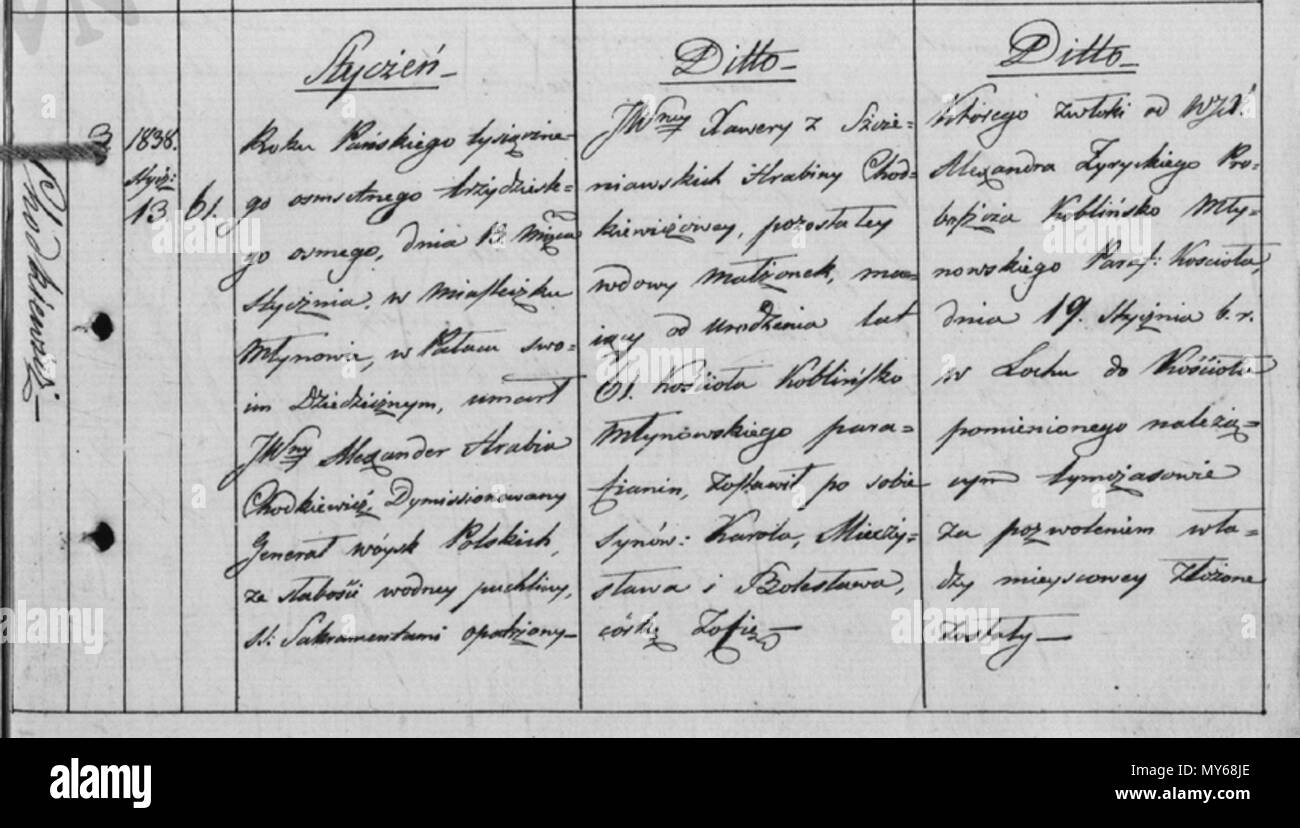 Chodkiewicz
3
1838.
Stycz:
13.
61.
Styczeń
Roku Pańskiego tysiączne-
go osmsetnego trzydziest-
go osmego, dnia 13. Miąca
Stycznia, w Miasteczku
Młynowie, w Pałacu swo-
im Dziedzicznym, umarł
JWny Alexander Hrabia
Chodkiewicz, Dymissionowany
Generał wóysk Polskich,
ze słabości wodney puchliny,
SS: Sakramentami opatrzony
Ditto
JWney Xawery z Szcze-
niawskich Hrabiny Chod-
kiewiczowey, pozostałey
wdowy Małżonek, ma-
iący od urodzenia lat
61. Kościoła Koblińsko
Młynowskiego para-
fianin, zostawił po sobie
synów: Karola, Mieczy-
sława i Bolesława,
córkę Zofię
Ditto
którego zwłoki od WJX.
Alexandra Zyryckiego Pro-
boszcza Koblińsko Mły-
nowskiego Paraf: Kościoła,
dnia 19. Stycznia b. r.
w Lochu do Kościoła
pomienionego należą-
cym tymczasowie
za pozwoleniem wła-
dzy mieyscowey złożone
zostały
a alamy
alamy
Image ID: MY68JE
www.alamy.com